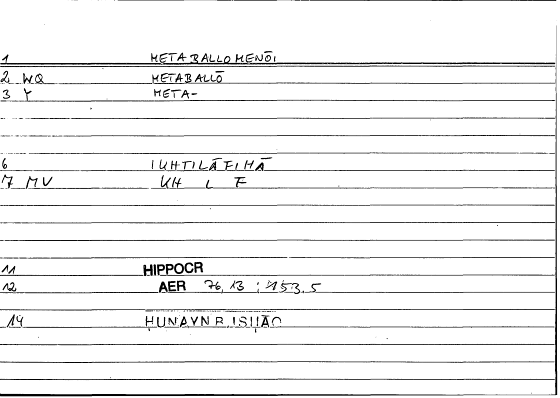 1 METABALLOMENŌI
2 WQ METABALLŌ
3 Y META-
6 IUHTILĀFIHĀ
7 MV UH L F
11 HIPPOCR
12 AER 76,13 ; 153.5
14